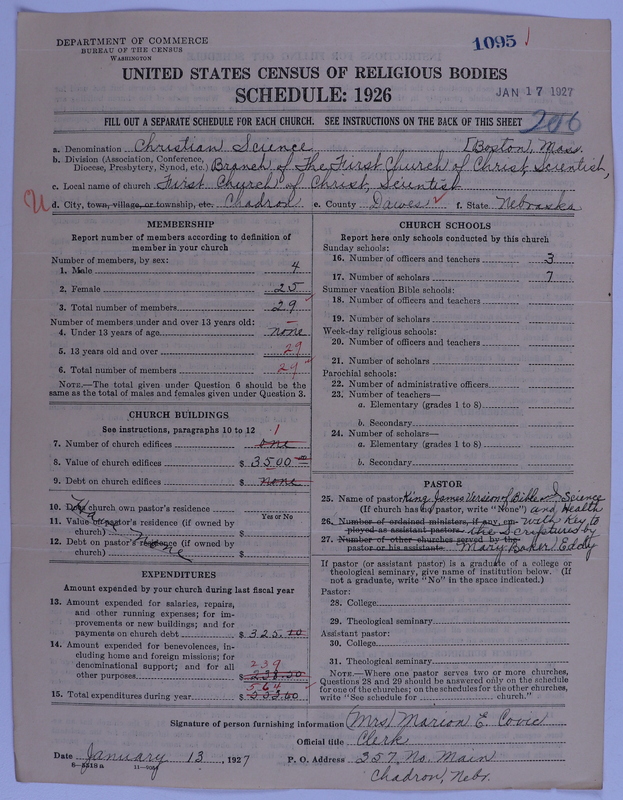 DEPARTMENT OF COMMERCE
BUREAU OF THE CENSUS
WASHINGTON
1095
UNITED STATES CENSUS OF RELIGIOUS BODIES
SCHEDULE: 1926
JAN 17 1927
FILL OUT A SEPARATE SCHEDULE FOR EACH CHURCH. SEE INSTRUCTIONS ON THE BACK OF THIS SHEET
206
a. Denomination Christian Science [Boston, Mass.
b. Division (Association, Conference, Diocese, Presbytery, Synod, etc.) Branch of The First Church of Christ, Scientist,
c. Local name of church First Church of Christ, Scientist
U d. City, town, village, or township, etc. Chadron e. County Dawes f. State Nebraska
MEMBERSHIP
Report number of members according to definition of
member in your church
Number of members, by sex:
1. Male 4
2. Female 25
3. Total number of members 29
Number of members under and over 13 years old:
4. Under 13 years of age none
5. 13 years old and over 29
6. Total number of members 29
NOTE.—The total given under Question 6 should be
same as the total of males and females given under Question 3.
CHURCH BUILDINGS
See instructions, paragraphs 10 to 12
7. Number of church edifices one 1
8. Value of church edifices $ 3500.00
9. Debt on church edifices $ none
10. Does church own pastor's residence
Yes or No
11. Value of pastor's residence (if owned by
church) $
12. Debt on pastor's residence (if owned by
church) $
Have None
EXPENDITURES
Amount expended by your church during last fiscal year
13. Amount expended for salaries, repairs,
and other running expenses; for im-
provements or new buildings; and for
payments on church debt $ 325.10
14. Amount expended for benevolences, in-
cluding home and foreign missions; for
denominational support; and for all
other purposes 239
$ 238.50
564
15. Total expenditures during year $
CHURCH SCHOOLS
Report here only schools conducted by this church
Sunday schools:
16. Number of officers and teachers 3
17. Number of scholars 7
Summer vacation Bible schools:
18. Number of officers and teachers
19. Number of scholars
Week-day religious schools:
20. Number of officers and teachers
21. Number of scholars
Parochial schools:
22. Number of administrative officers
23. Number of teachers—
a. Elementary (grades 1 to 8)
b. Secondary
24. Number of scholars—
a. Elementary (grades 1 to 8)
b. Secondary
PASTOR
25. Name of pastor King James Version of Bible and Science
(If church has no pastor, write "None") and Health
26. Number of ordained ministers, if any, em- with Key to
ployed as assistant pastors the Scriptures by
27. Number of other churches served by the
pastor or his assistants Mary Baker Eddy
If pastor (or assistant pastor) is a graduate of a college or
theological seminary, give name of institution below. (If
not a graduate, write "No" in the space indicated.)
Pastor:
28. College
29. Theological seminary
Assistant pastor:
30. College
31. Theological seminary
NOTE.—Where one pastor serves two or more churches,
Questions 28 and 29 should be answered only on the schedule
for one of the churches; on the schedules for the other churches,
write "See schedule for church."
Signature of person furnishing information (Mrs) Marion E. Covic
Official title Clerk
Date January 13, 1927 P. O. Address 357, No. Main
6—5518a
Chadron, Nebr.